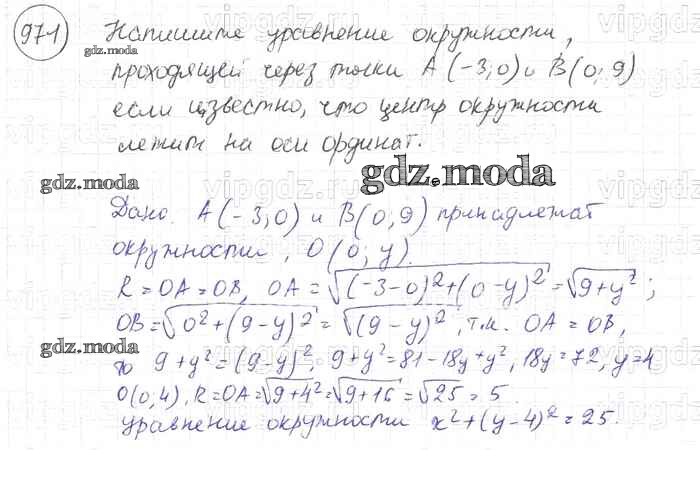 971
Напишите уравнение окружности,
gdz.moda
проходящей через точки A(-3;0) и B(0;9)
если известно, что центр окружности
лежит на оси ординат.
gdz.moda gdz.moda
Дано. A(-3;0) и B(0;9) принадлежат
окружности, O(0; y).
R = OA = OB, OA = √((-3-0)²+(0-y)²) = √(9+y²);
OB = √(0²+(9-y)²) = √((9-y)²), т.к. OA = OB,
gdz.moda
то 9+y²=(9-y)², 9+y²=81-18y+y², 18y=72, y=4
O(0,4), R=OA=√(9+4²)=√(9+16)=√25=5.
gdz.moda gdz.moda
уравнение окружности x²+(y-4)²=25.